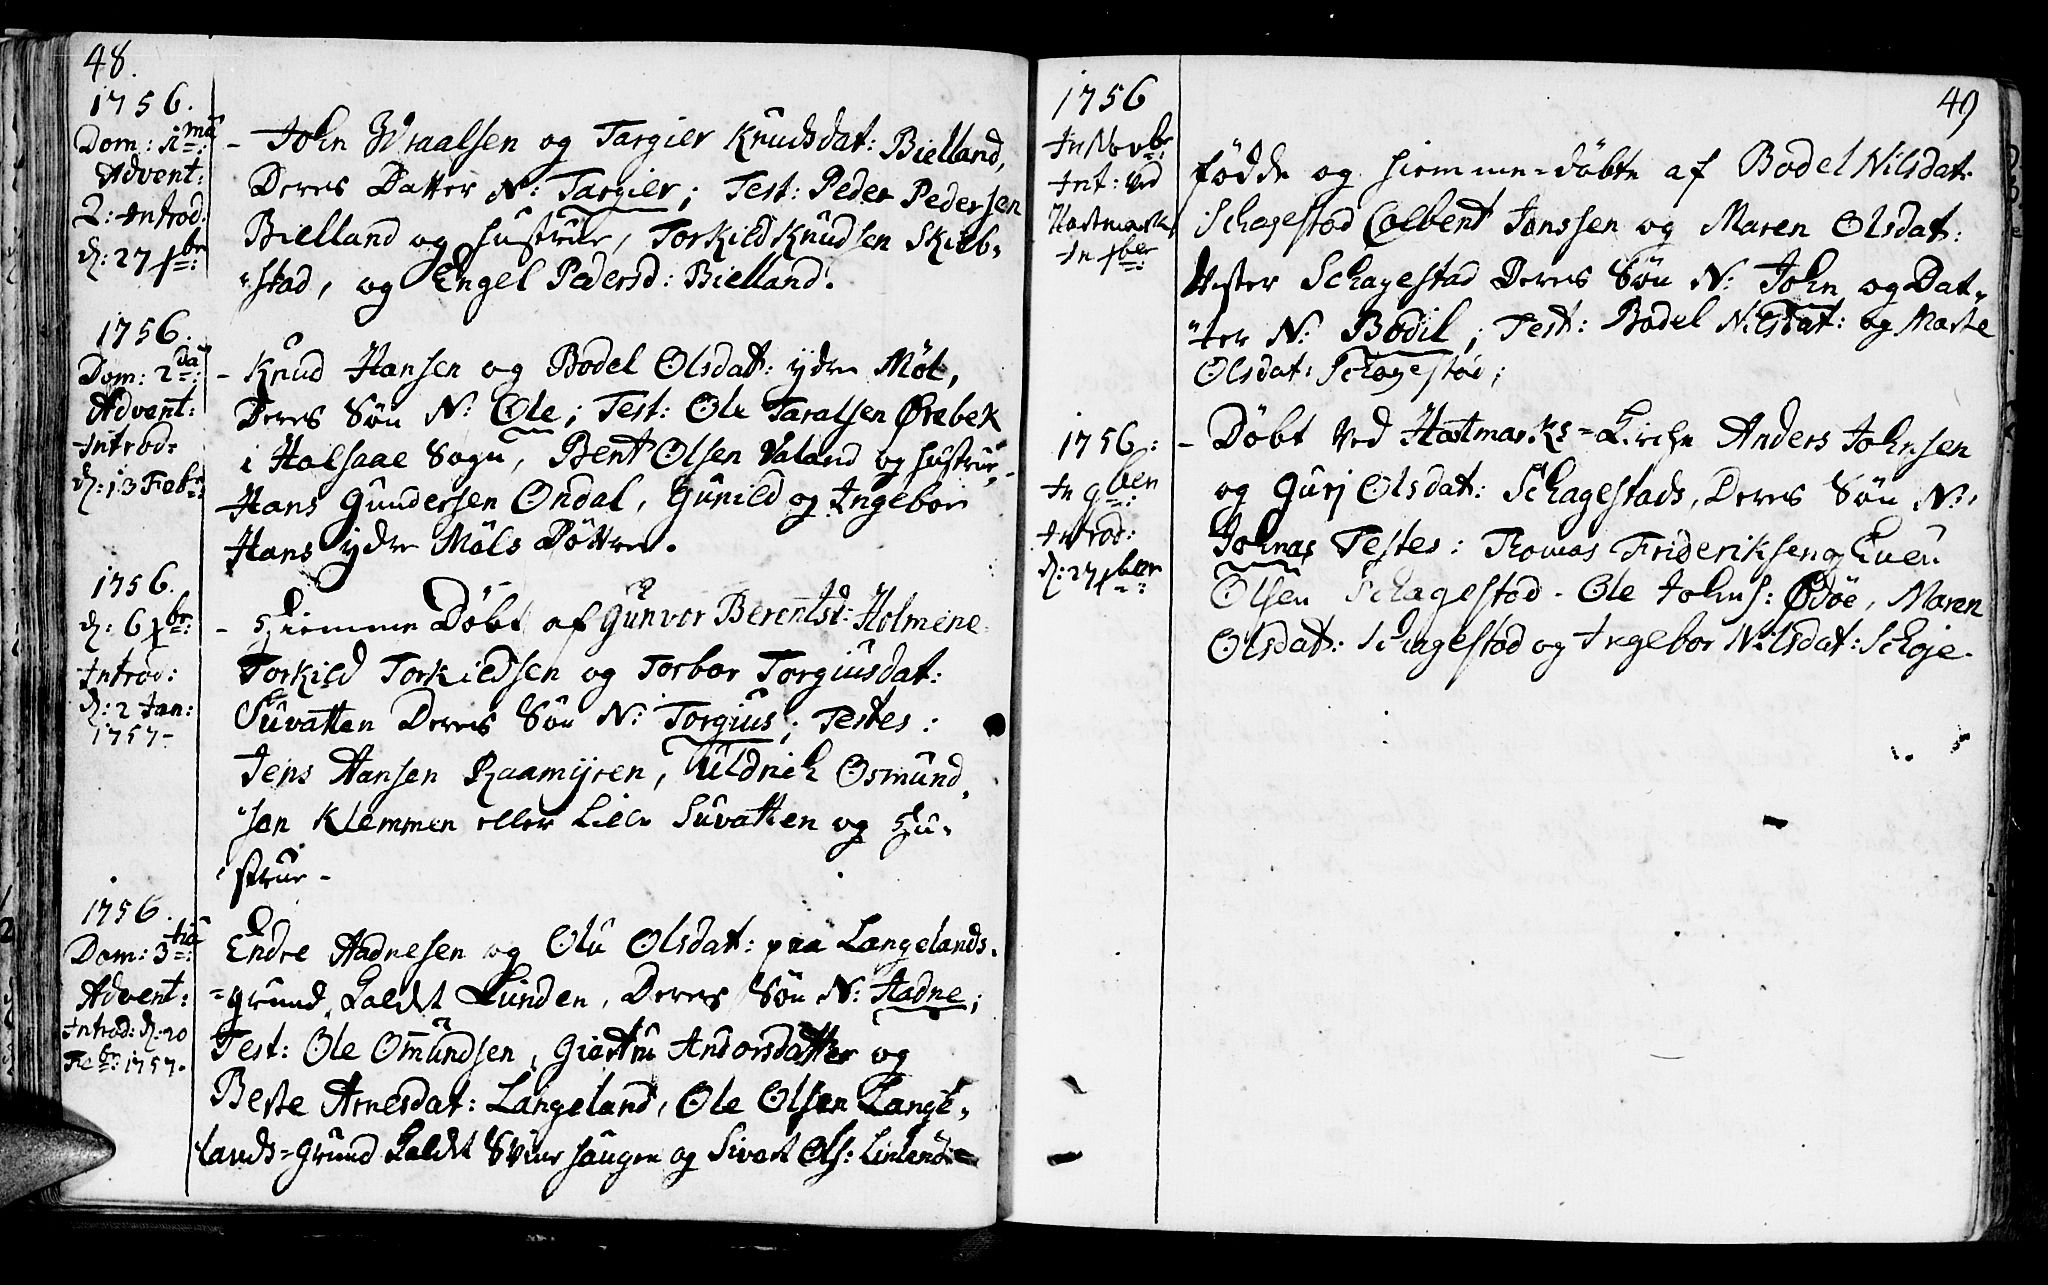 48.
1756.
Dom: 1ma:
Advent:
2: Introd:
d: 27 xbr:
- John Wraalsen og Targier Knudsdat: Bielland,
Deres Datter N: Targier; Test: Peder Pedersen
Bielland og Hustrue, Torkild Knudsen Skieb-
stad, og Engel Pedersd: Bielland.
1756.
Dom: 2da:
Advent:
Introd:
d: 13 Febr:
- Knud Hansen og Bodel Olsdat: ydre Møl,
Deres Søn N: Ole; Test: Ole Taralsen Ørebek
i Halsaae Sogn, Bent Olsen Valand og Hustrue,
Hans Gundersen Ondal, Gunild og Ingebor
Hans ydre Møls Døttre.
1756.
d: 6 xbr:
Introd:
d: 2 Jan:
1757-
- Hiemme Døbt af Gunvor Berentsd: Holmene
Torkild Torkildsen og Torbor Torgiusdat:
Suvatten Deres Søn N: Torgius; Testes:
Jens Hansen Raamyren, Uldrich Osmund-
sen Klemmen eller Lille Suvatten og Hu-
strue-
1756.
Dom: 3tia:
Advent:
Introd: d: 20
Febr: 1757.
Endre Aadnesen og Olu Olsdat: paa Langelands-
=grund kaldt Lunden, Deres Søn N: Aadne;
Test: Ole Omundsen, Giertru Andorsdatter og
Berte Arnesdat: Langeland, Ole Olsen Lange-
lands=grund kaldt Svinehaugen og Sivert Ols:
49
1756
In Novbr:
Int: ved
Hartmarks
In xber:
fødde og Hiemme-døbte af Bodel Nilsdat:
Schagestad Colbent Jonssen og Maren Olsdat:
Vester Schagestad Deres Søn N: John og Dat-
ter N: Bodil; Test: Bodel Nilsdat: og Marte
Olsdat: Schagestad;
1756:
In 9ben:
Introd:
d: 27 xber:
- Døbt ved Hartmarks=Kirche Anders Johnsen
og Gurj Olsdat: Schagestads, Deres Søn N:
Johnas Testes: Thomas Frideriksen og Even
Olsen Schagestad - Ole Johns: Ødøe, Maren
Olsdat: Schagestad og Ingebor Nilsdat: Schoje.